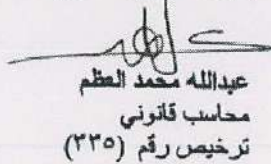 عبدالله محمد العظم
محاسب قانوني
ترخيص رقم (٣٣٥)